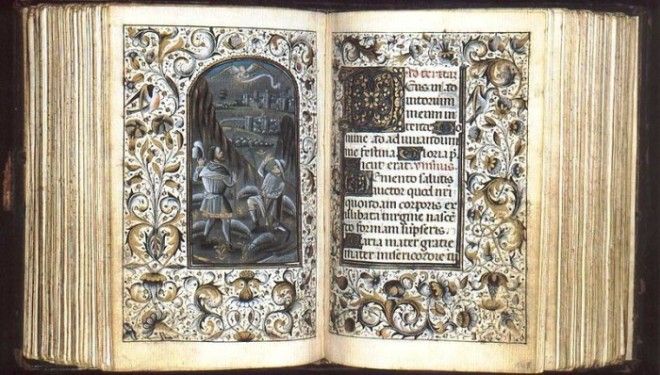 Ad terciam
Deus in ad
iutorium
meum in
tende Do
mine ad adiuuandum
me festina Gloria p
sicut erat ymnus
Memento salutis
auctor quod nri
quondam corporis ex
illibata virgine nasce
do formam supseris
Maria mater gratie
mater misericordie tu